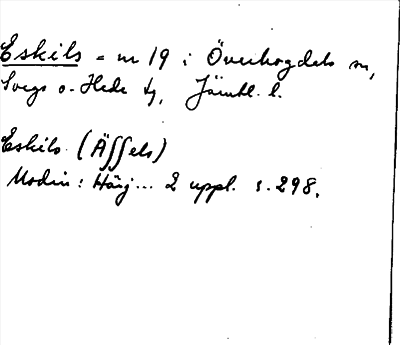 Eskils = nr 19 i Överhogdals sn,
Svegs o. Hede tg, Jämtl. l.
Eskils (Äſſels)
Modin: Härj... 2 uppl. s. 298.